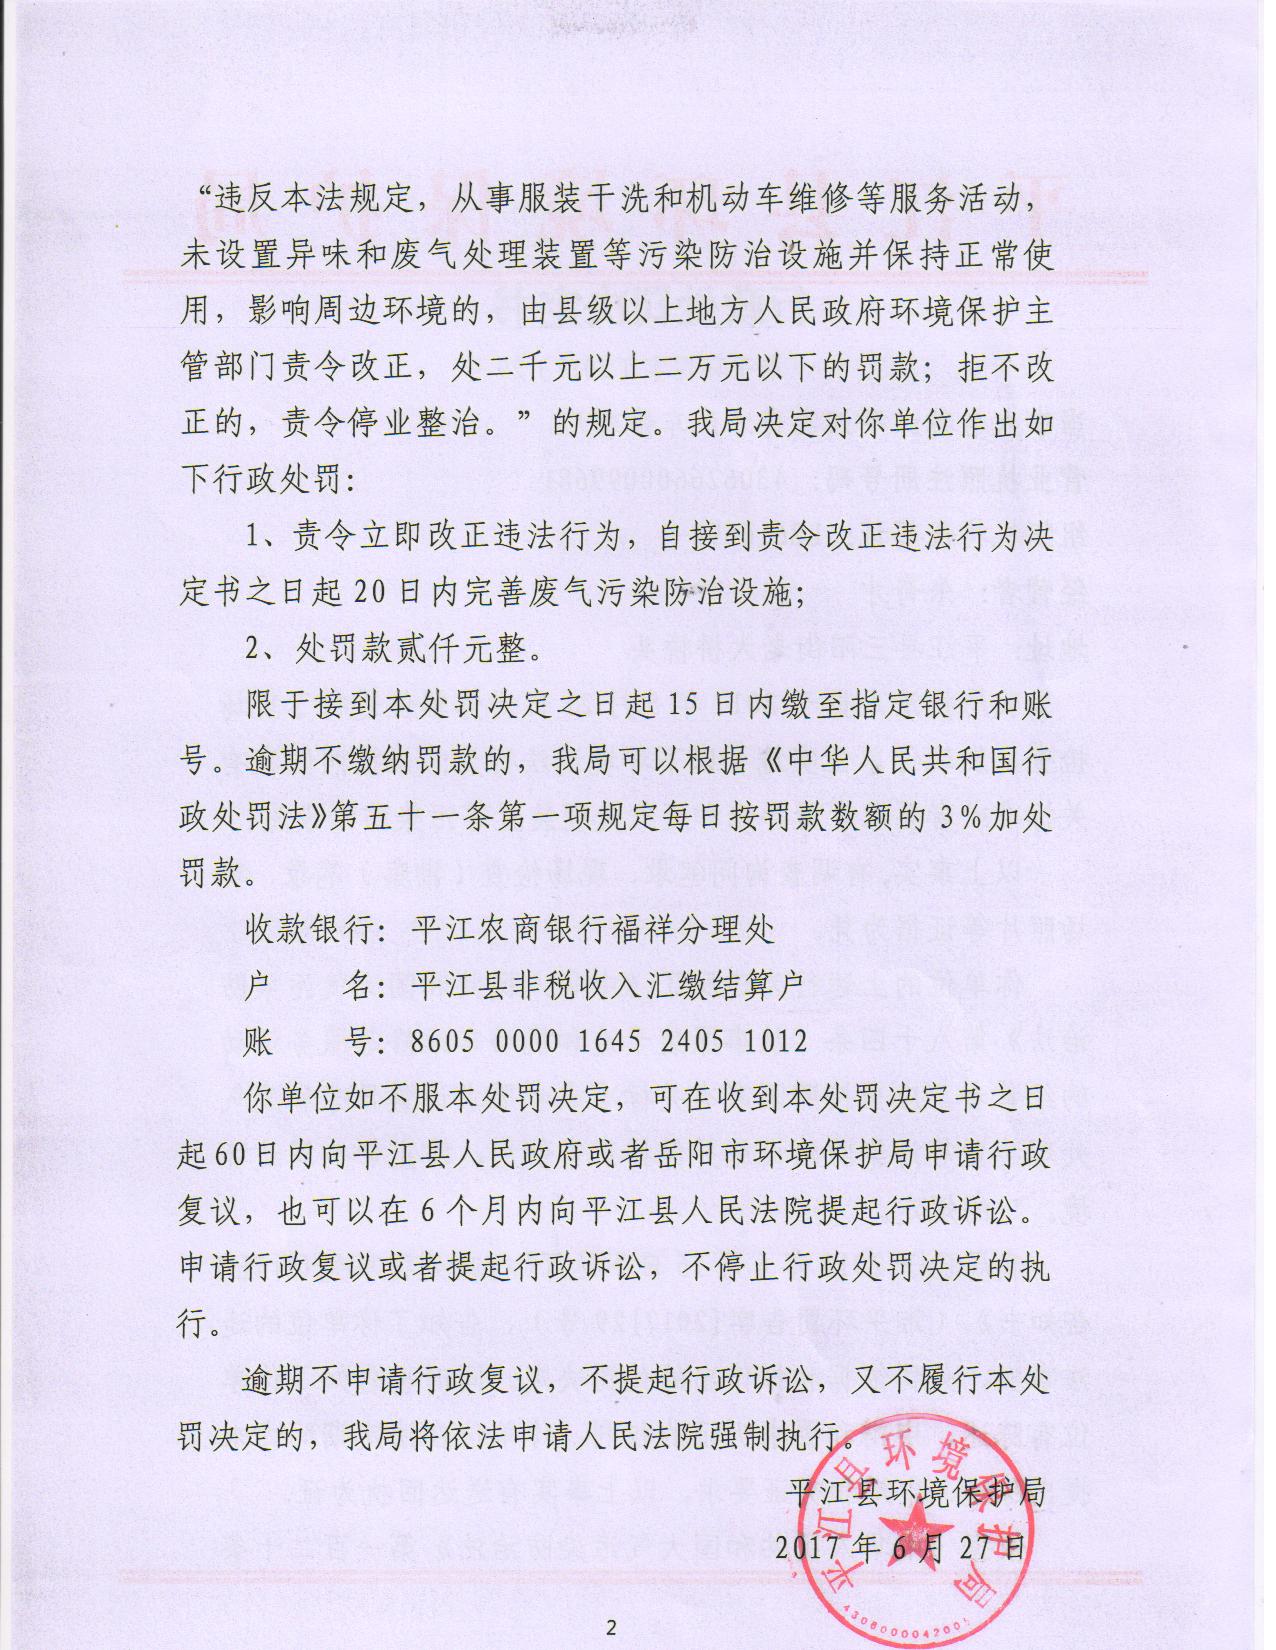 “违反本法规定，从事服装干洗和机动车维修等服务活动，
未设置异味和废气处理装置等污染防治设施并保持正常使
用，影响周边环境的，由县级以上地方人民政府环境保护主
管部门责令改正，处二千元以上二万元以下的罚款；拒不改
正的，责令停业整治。”的规定。我局决定对你单位作出如
下行政处罚：
1、责令立即改正违法行为，自接到责令改正违法行为决
定书之日起 20 日内完善废气污染防治设施；
2、处罚款贰仟元整。
限于接到本处罚决定之日起 15 日内缴至指定银行和账
号。逾期不缴纳罚款的，我局可以根据《中华人民共和国行
政处罚法》第五十一条第一项规定每日按罚款数额的 3%加处
罚款。
收款银行：平江农商银行福祥分理处
户　　名：平江县非税收入汇缴结算户
账　　号：8605 0000 1645 2405 1012
你单位如不服本处罚决定，可在收到本处罚决定书之日
起 60 日内向平江县人民政府或者岳阳市环境保护局申请行政
复议，也可以在 6 个月内向平江县人民法院提起行政诉讼。
申请行政复议或者提起行政诉讼，不停止行政处罚决定的执
行。
逾期不申请行政复议，不提起行政诉讼，又不履行本处
罚决定的，我局将依法申请人民法院强制执行。
平江县环境保护局
2017 年 6 月 27 日
平江县环境保护局
2